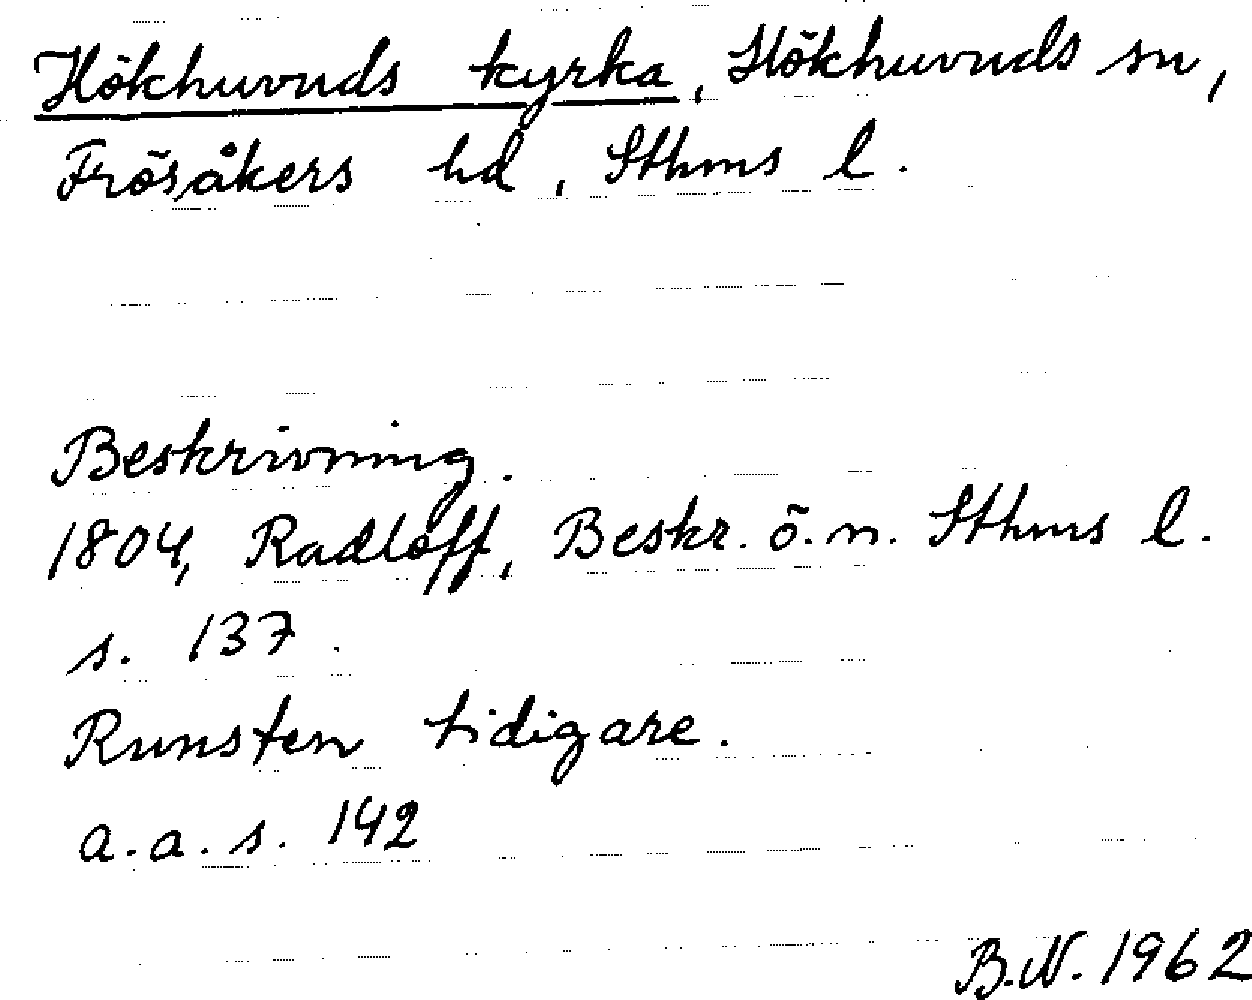 Hökhuvuds kyrka, Hökhuvuds sn,
Frösåkers hd, Sthms l.
Beskrivning.
1804, Radloff, Beskr. ö. n. Sthms l.
s. 137.
Runsten tidigare.
a.a. s. 142
B.N. 1962